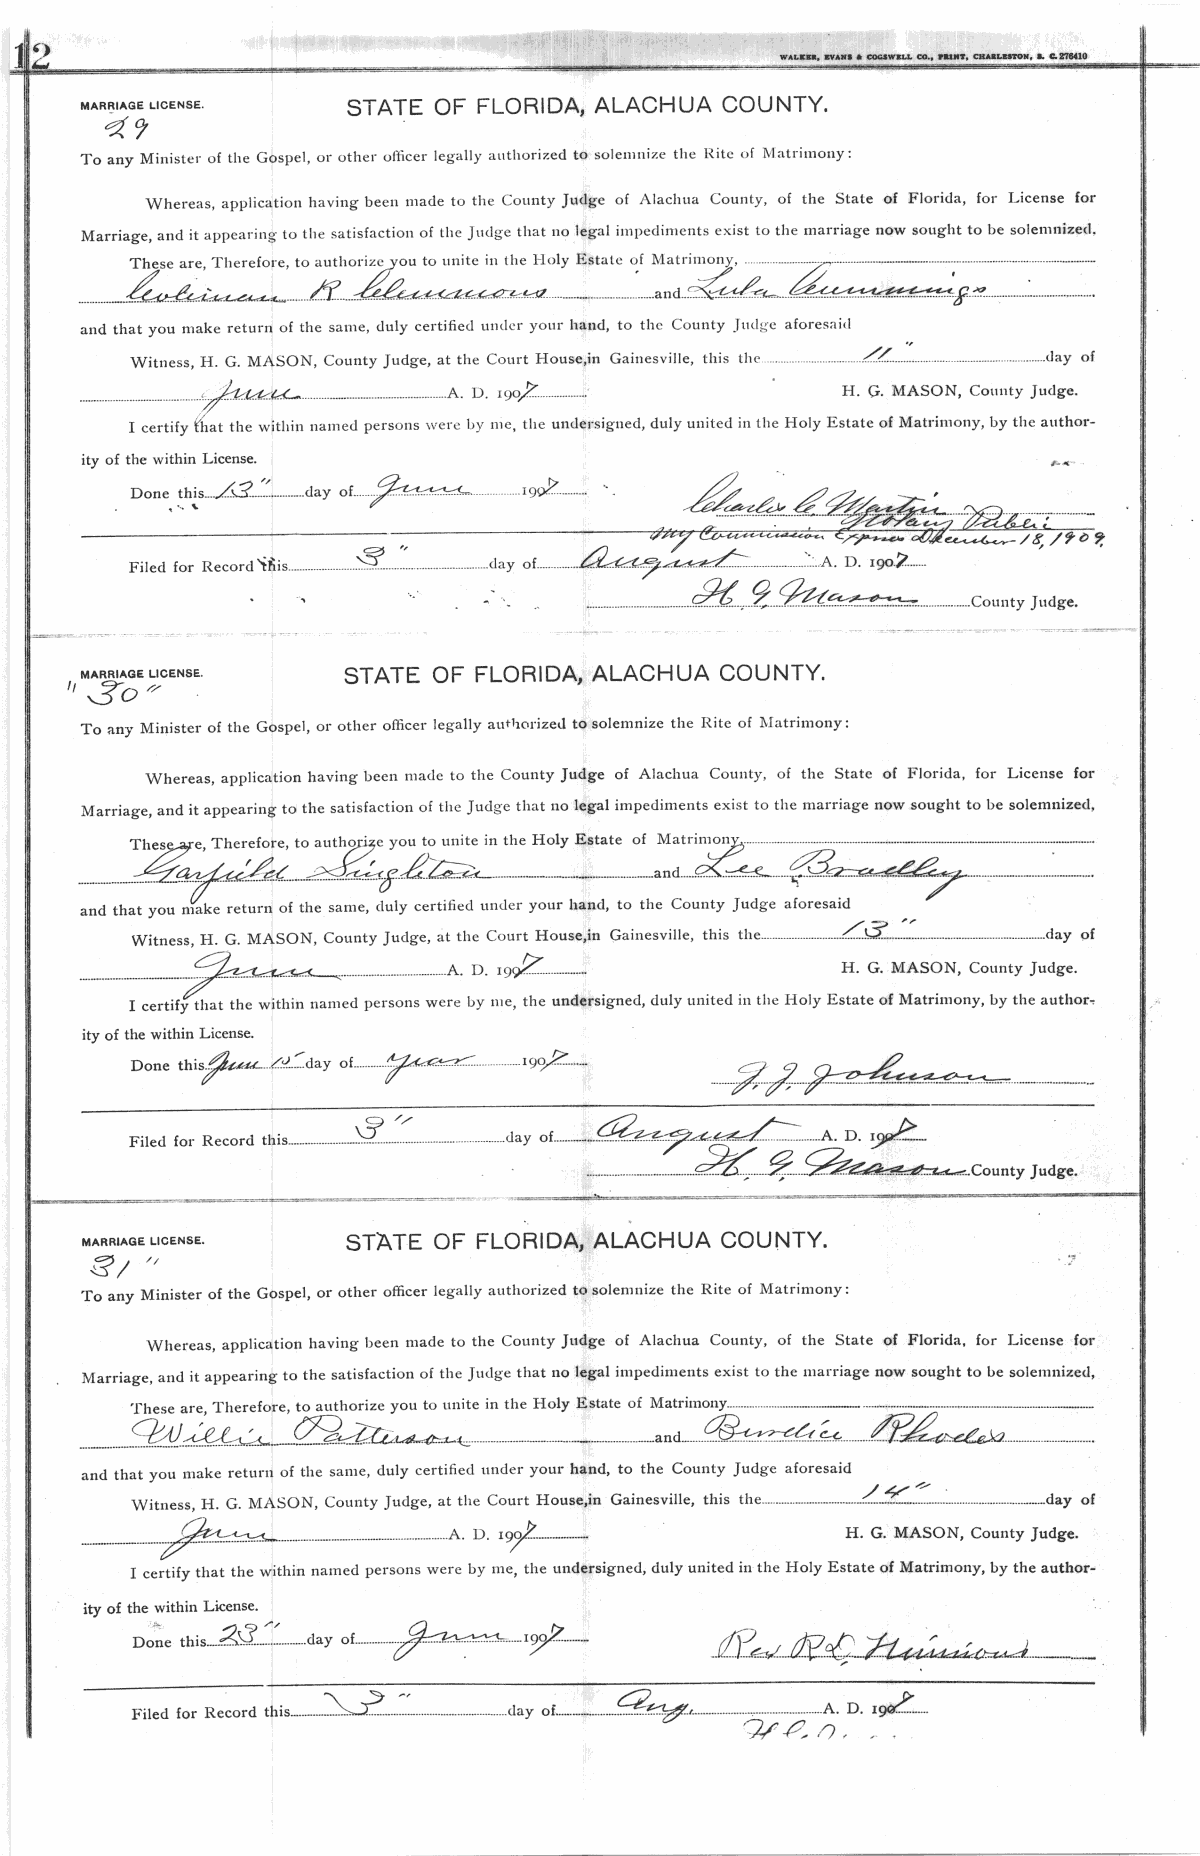 12
WALKER, EVANS & COGSWELL CO., PRINT, CHARLESTON, S. C. 276410
MARRIAGE LICENSE. STATE OF FLORIDA, ALACHUA COUNTY.
29
To any Minister of the Gospel, or other officer legally authorized to solemnize the Rite of Matrimony:
Whereas, application having been made to the County Judge of Alachua County, of the State of Florida, for License for
Marriage, and it appearing to the satisfaction of the Judge that no legal impediments exist to the marriage now sought to be solemnized.
These are, Therefore, to authorize you to unite in the Holy Estate of Matrimony,
Coleman R Clemmons and Lula Cummings
and that you make return of the same, duly certified under your hand, to the County Judge aforesaid
Witness, H. G. MASON, County Judge, at the Court House, in Gainesville, this the 11" day of
June A. D. 1907 H. G. MASON, County Judge.
I certify that the within named persons were by me, the undersigned, duly united in the Holy Estate of Matrimony, by the author-
ity of the within License.
Done this 13" day of June 1907
Charles C. Martin
Notary Public
My Commission Expires December 18, 1909.
Filed for Record this 3" day of August A. D. 1907
H. G. Mason County Judge.
MARRIAGE LICENSE. STATE OF FLORIDA, ALACHUA COUNTY.
"30"
To any Minister of the Gospel, or other officer legally authorized to solemnize the Rite of Matrimony:
Whereas, application having been made to the County Judge of Alachua County, of the State of Florida, for License for
Marriage, and it appearing to the satisfaction of the Judge that no legal impediments exist to the marriage now sought to be solemnized,
These are, Therefore, to authorize you to unite in the Holy Estate of Matrimony,
Garfield Singleton and Lee Bradley
and that you make return of the same, duly certified under your hand, to the County Judge aforesaid
Witness, H. G. MASON, County Judge, at the Court House, in Gainesville, this the 13" day of
June A. D. 1907 H. G. MASON, County Judge.
I certify that the within named persons were by me, the undersigned, duly united in the Holy Estate of Matrimony, by the author-
ity of the within License.
Done this June 15 day of year 1907
J. J. Johnson
Filed for Record this 3" day of August A. D. 1907
H. G. Mason County Judge.
MARRIAGE LICENSE. STATE OF FLORIDA, ALACHUA COUNTY.
31"
To any Minister of the Gospel, or other officer legally authorized to solemnize the Rite of Matrimony:
Whereas, application having been made to the County Judge of Alachua County, of the State of Florida, for License for
Marriage, and it appearing to the satisfaction of the Judge that no legal impediments exist to the marriage now sought to be solemnized,
These are, Therefore, to authorize you to unite in the Holy Estate of Matrimony
Willie Patterson and Burdice Rhodes
and that you make return of the same, duly certified under your hand, to the County Judge aforesaid
Witness, H. G. MASON, County Judge, at the Court House, in Gainesville, this the 14" day of
June A. D. 1907 H. G. MASON, County Judge.
I certify that the within named persons were by me, the undersigned, duly united in the Holy Estate of Matrimony, by the author-
ity of the within License.
Done this 23" day of June 1907
Rev R D.
Filed for Record this 3" day of Aug. A. D. 1907